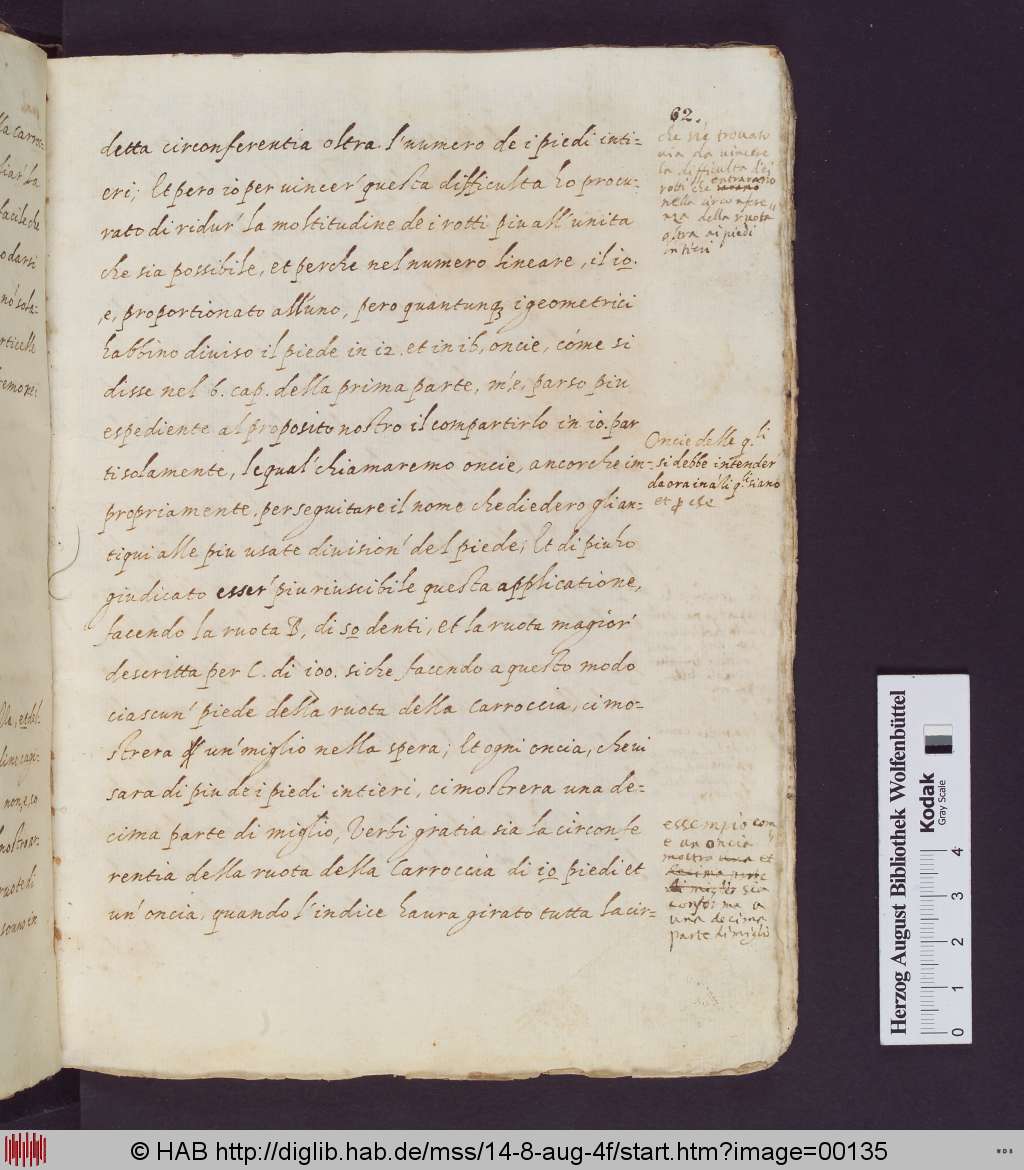 62.
detta circonferentia oltra l'numero de i piedi inti-
eri; Et pero io per vincer' questa difficulta ho procu-
rato di ridur' la moltitudine de i rotti piu all'unita
che sia possibile, et perche nel numero lineare, il io.
,e, proportionato all'uno, pero quantunq3 i geometrici
habbino diviso il piede in i2. et in ib, oncie, cóme si
disse nel 6. cap. della prima parte, m',e, parso piu
espediente al proposito nostro il compartirlo in io. par
ti solamente, le qual' chiamaremo oncie, ancorche im-
propriamente, per seguitare il nome che diedero gli an-
tiqui alle piu usate division' del piede; Et di piu ho
giudicato esser' piu riuscibile questa applicatione,
facendo la ruota B, di 50 denti, et la ruota magior'
descritta per C. di ioo. si che facendo a questo modo
ciascun' piede della ruota della Carroccia, ci mo-
strera un' miglio nella spera; Et ogni oncia, che vi
sara di piu de i piedi intieri, ci mostrera una de-
cima parte di miglio, Verbi gratia sia la circonfe
rentia della ruota della Carroccia di io piedi et
un' oncia, quando l'indice haura girato tutta la cir-
che sia trovato
via da vincere
la difficulta d'ei
rotti che entrarano
nella circonfere
nza della ruota
oltra ai piedi
intieri
Oncie delle q.li
si debbe intender'
da ora ina'li q.li siano
et p che
essempio com
e un oncia
mostro una et
decima parte
di miglio sia
conforma a
una decima
parte di miglio
lla carroc-
facile che
o darsi
no' sola-
rticelle
Herzog August Bibliothek Wolfenbüttel
Kodak
Gray Scale
0 1 2 3 4
© HAB http://diglib.hab.de/mss/14-8-aug-4f/start.htm?image=00135